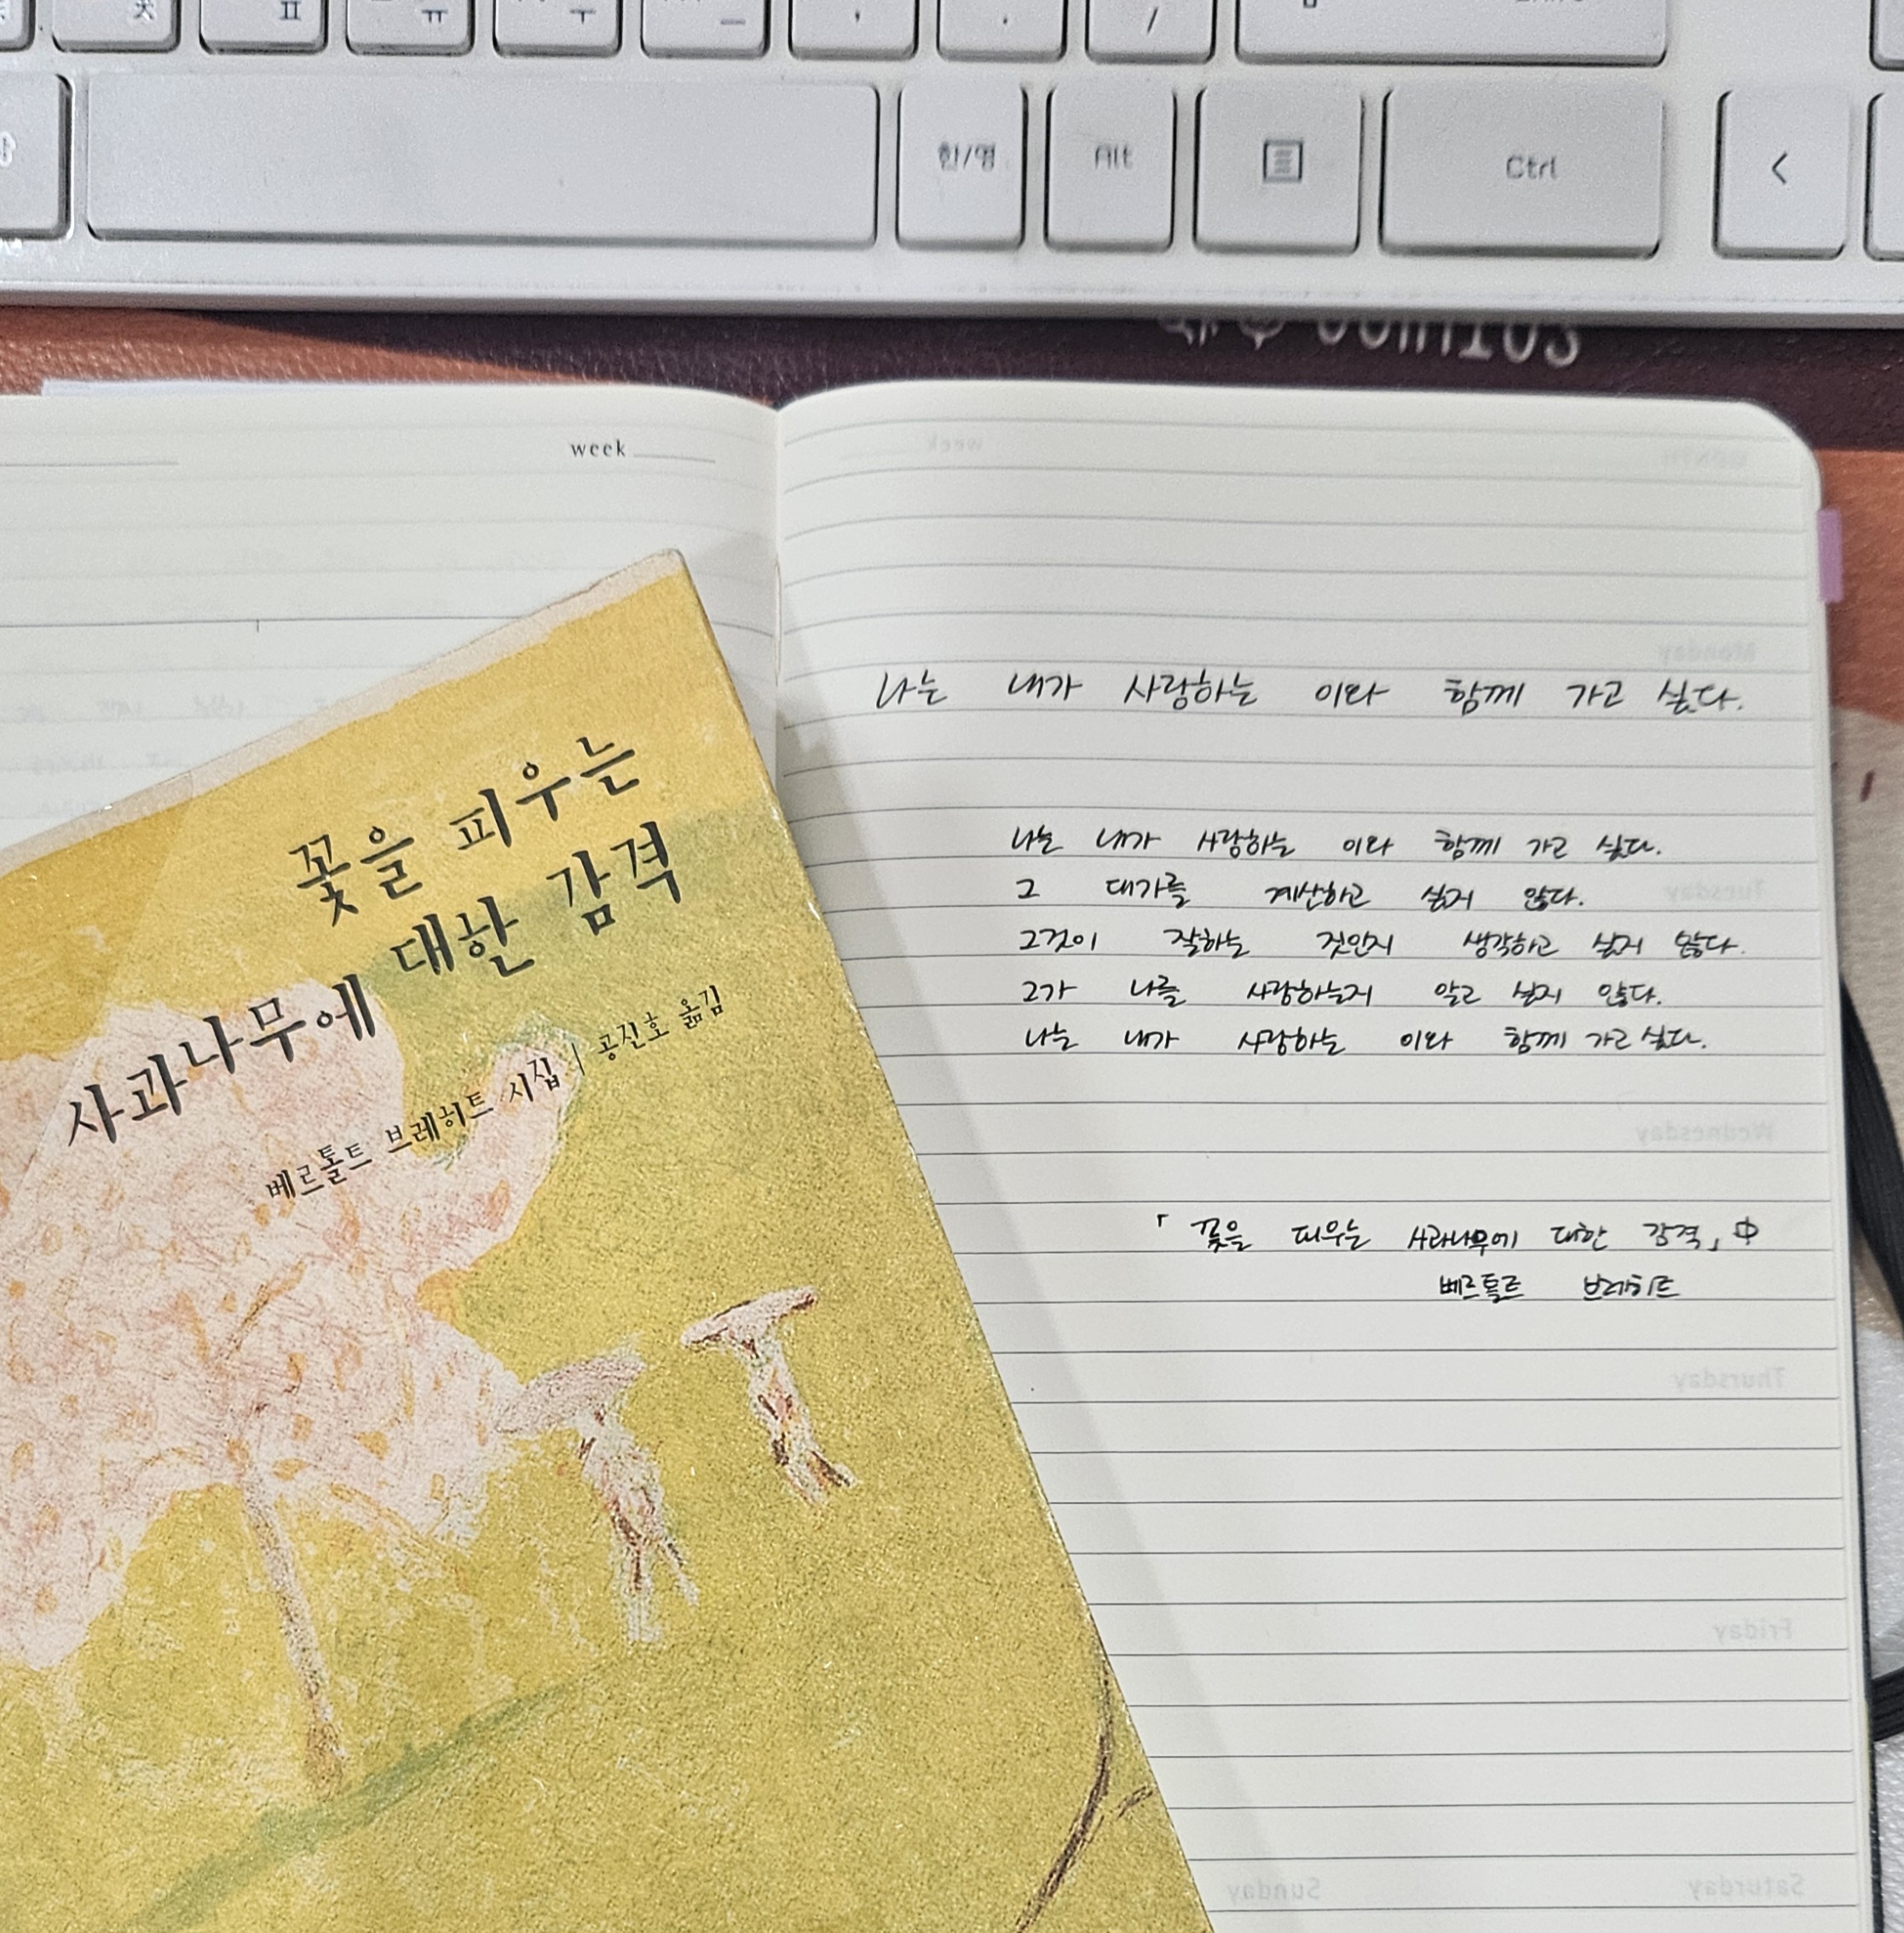 ㅊ ㅍ ㅠ ㅜ ㅡ , . /
한/영 Alt Ctrl <
week
꽃을 피우는
사과나무에 대한 감격
베르톨트 브레히트 시집 | 공진호 옮김
나는 내가 사랑하는 이와 함께 가고 싶다.
나는 내가 사랑하는 이와 함께 가고 싶다.
그 대가를 계산하고 싶지 않다.
그것이 잘하는 것인지 생각하고 싶지 않다.
그가 나를 사랑하는지 알고 싶지 않다.
나는 내가 사랑하는 이와 함께 가고 싶다.
「꽃을 피우는 사과나무에 대한 감격」中
베르톨트 브레히트
Monday
Tuesday
Wednesday
Thursday
Friday
Sunday Saturday